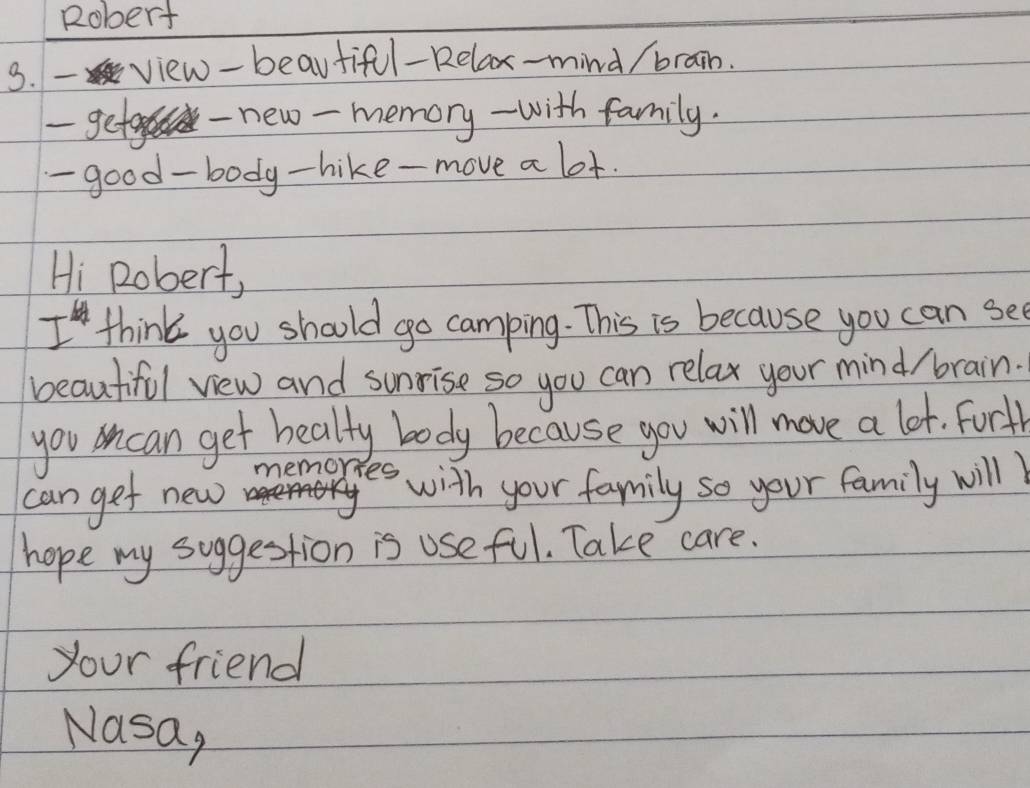 Robert
3. - view - beautiful - Relax - mind/brain.
- get - new - memory - with family.
- good - body - hike - move a lot.
Hi Robert,
I think you should go camping. This is because you can see
beautiful view and sunrise so you can relax your mind/brain.
you can get healty body because you will move a lot. Furth
can get new memories with your family so your family will
hope my suggestion is useful. Take care.
your friend
Nasa,